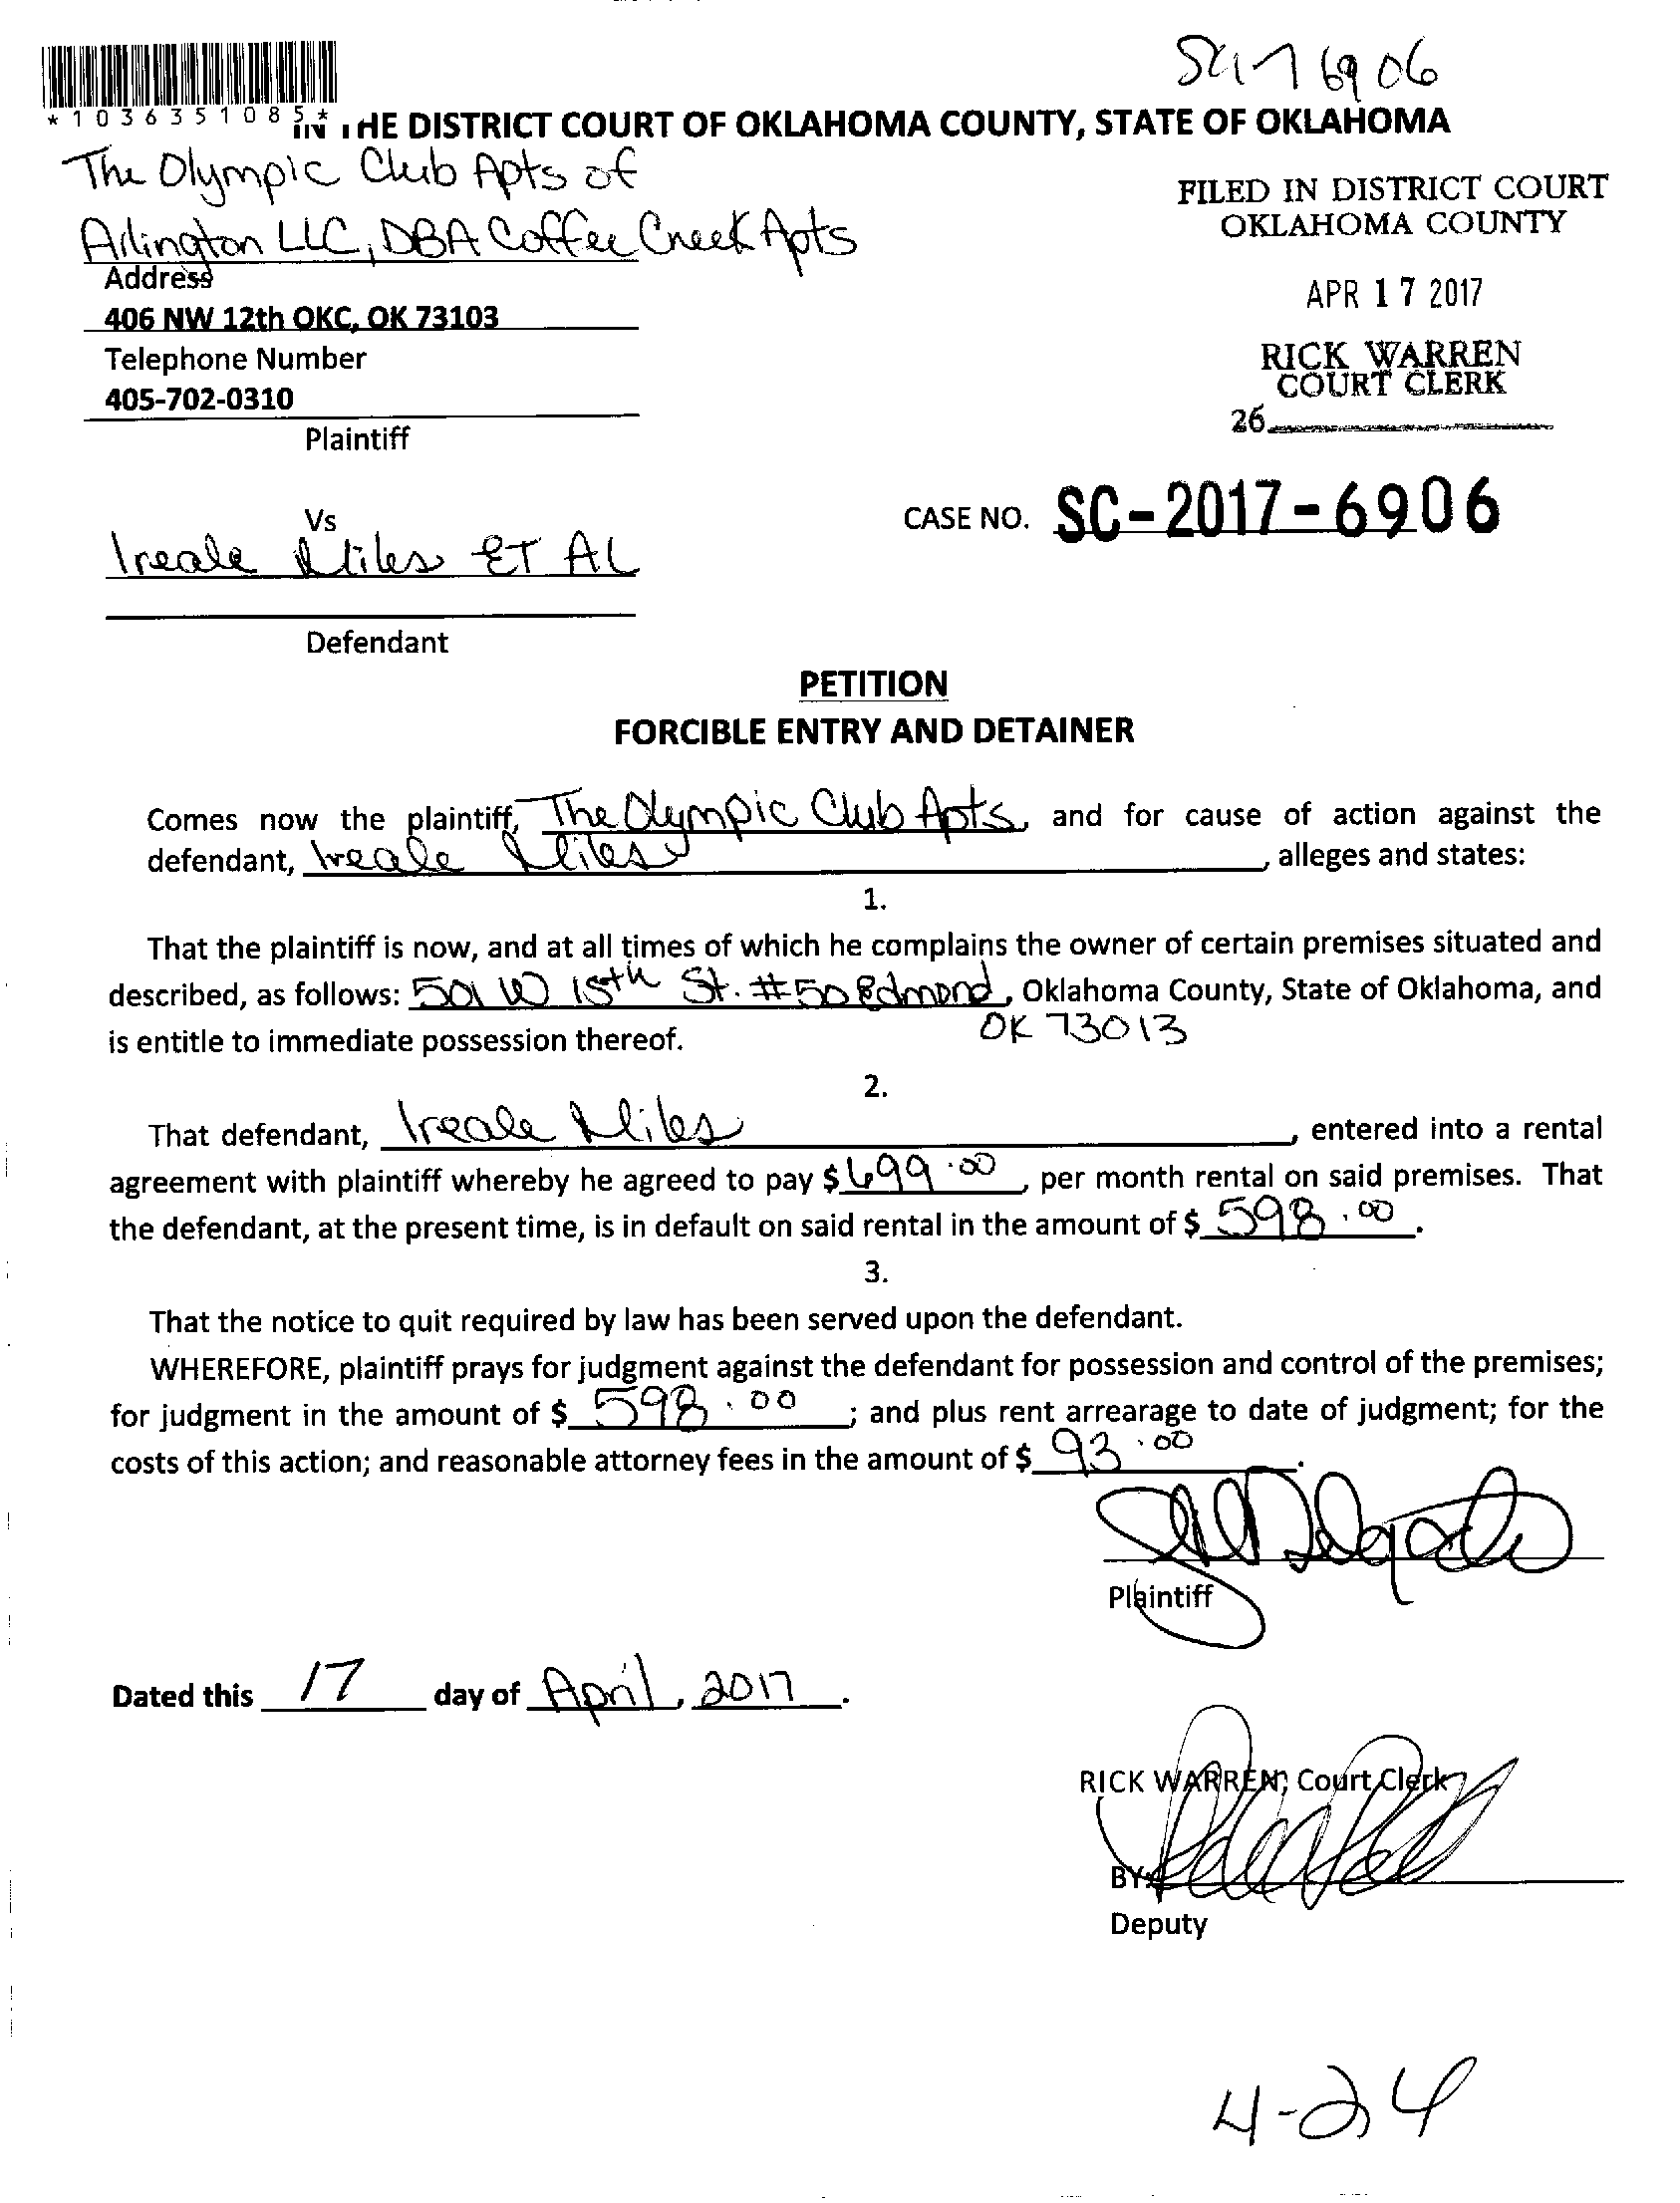 SC17 6906
*1036351085*
IN THE DISTRICT COURT OF OKLAHOMA COUNTY, STATE OF OKLAHOMA
The Olympic Club Apts of
Arlington LLC, DBA Coffee Creek Apts
Address
406 NW 12th OKC, OK 73103
Telephone Number
405-702-0310
Plaintiff
FILED IN DISTRICT COURT
OKLAHOMA COUNTY
APR 17 2017
RICK WARREN
COURT CLERK
26
Vs
Ireale Miles ET AL
Defendant
CASE NO. SC-2017-6906
PETITION
FORCIBLE ENTRY AND DETAINER
Comes now the plaintiff, The Olympic Club Apts, and for cause of action against the
defendant, Ireale Miles, alleges and states:
1.
That the plaintiff is now, and at all times of which he complains the owner of certain premises situated and
described, as follows: 501 W 15th St. #50 Edmond, Oklahoma County, State of Oklahoma, and
OK 73013
is entitle to immediate possession thereof.
2.
That defendant, Ireale Miles, entered into a rental
agreement with plaintiff whereby he agreed to pay $699.00, per month rental on said premises. That
the defendant, at the present time, is in default on said rental in the amount of $598.00.
3.
That the notice to quit required by law has been served upon the defendant.
WHEREFORE, plaintiff prays for judgment against the defendant for possession and control of the premises;
for judgment in the amount of $598.00; and plus rent arrearage to date of judgment; for the
costs of this action; and reasonable attorney fees in the amount of $93.00.
Delgado
Plaintiff
Dated this 17 day of April, 2017.
RICK WARREN, Court Clerk
BY:
Deputy
4-24